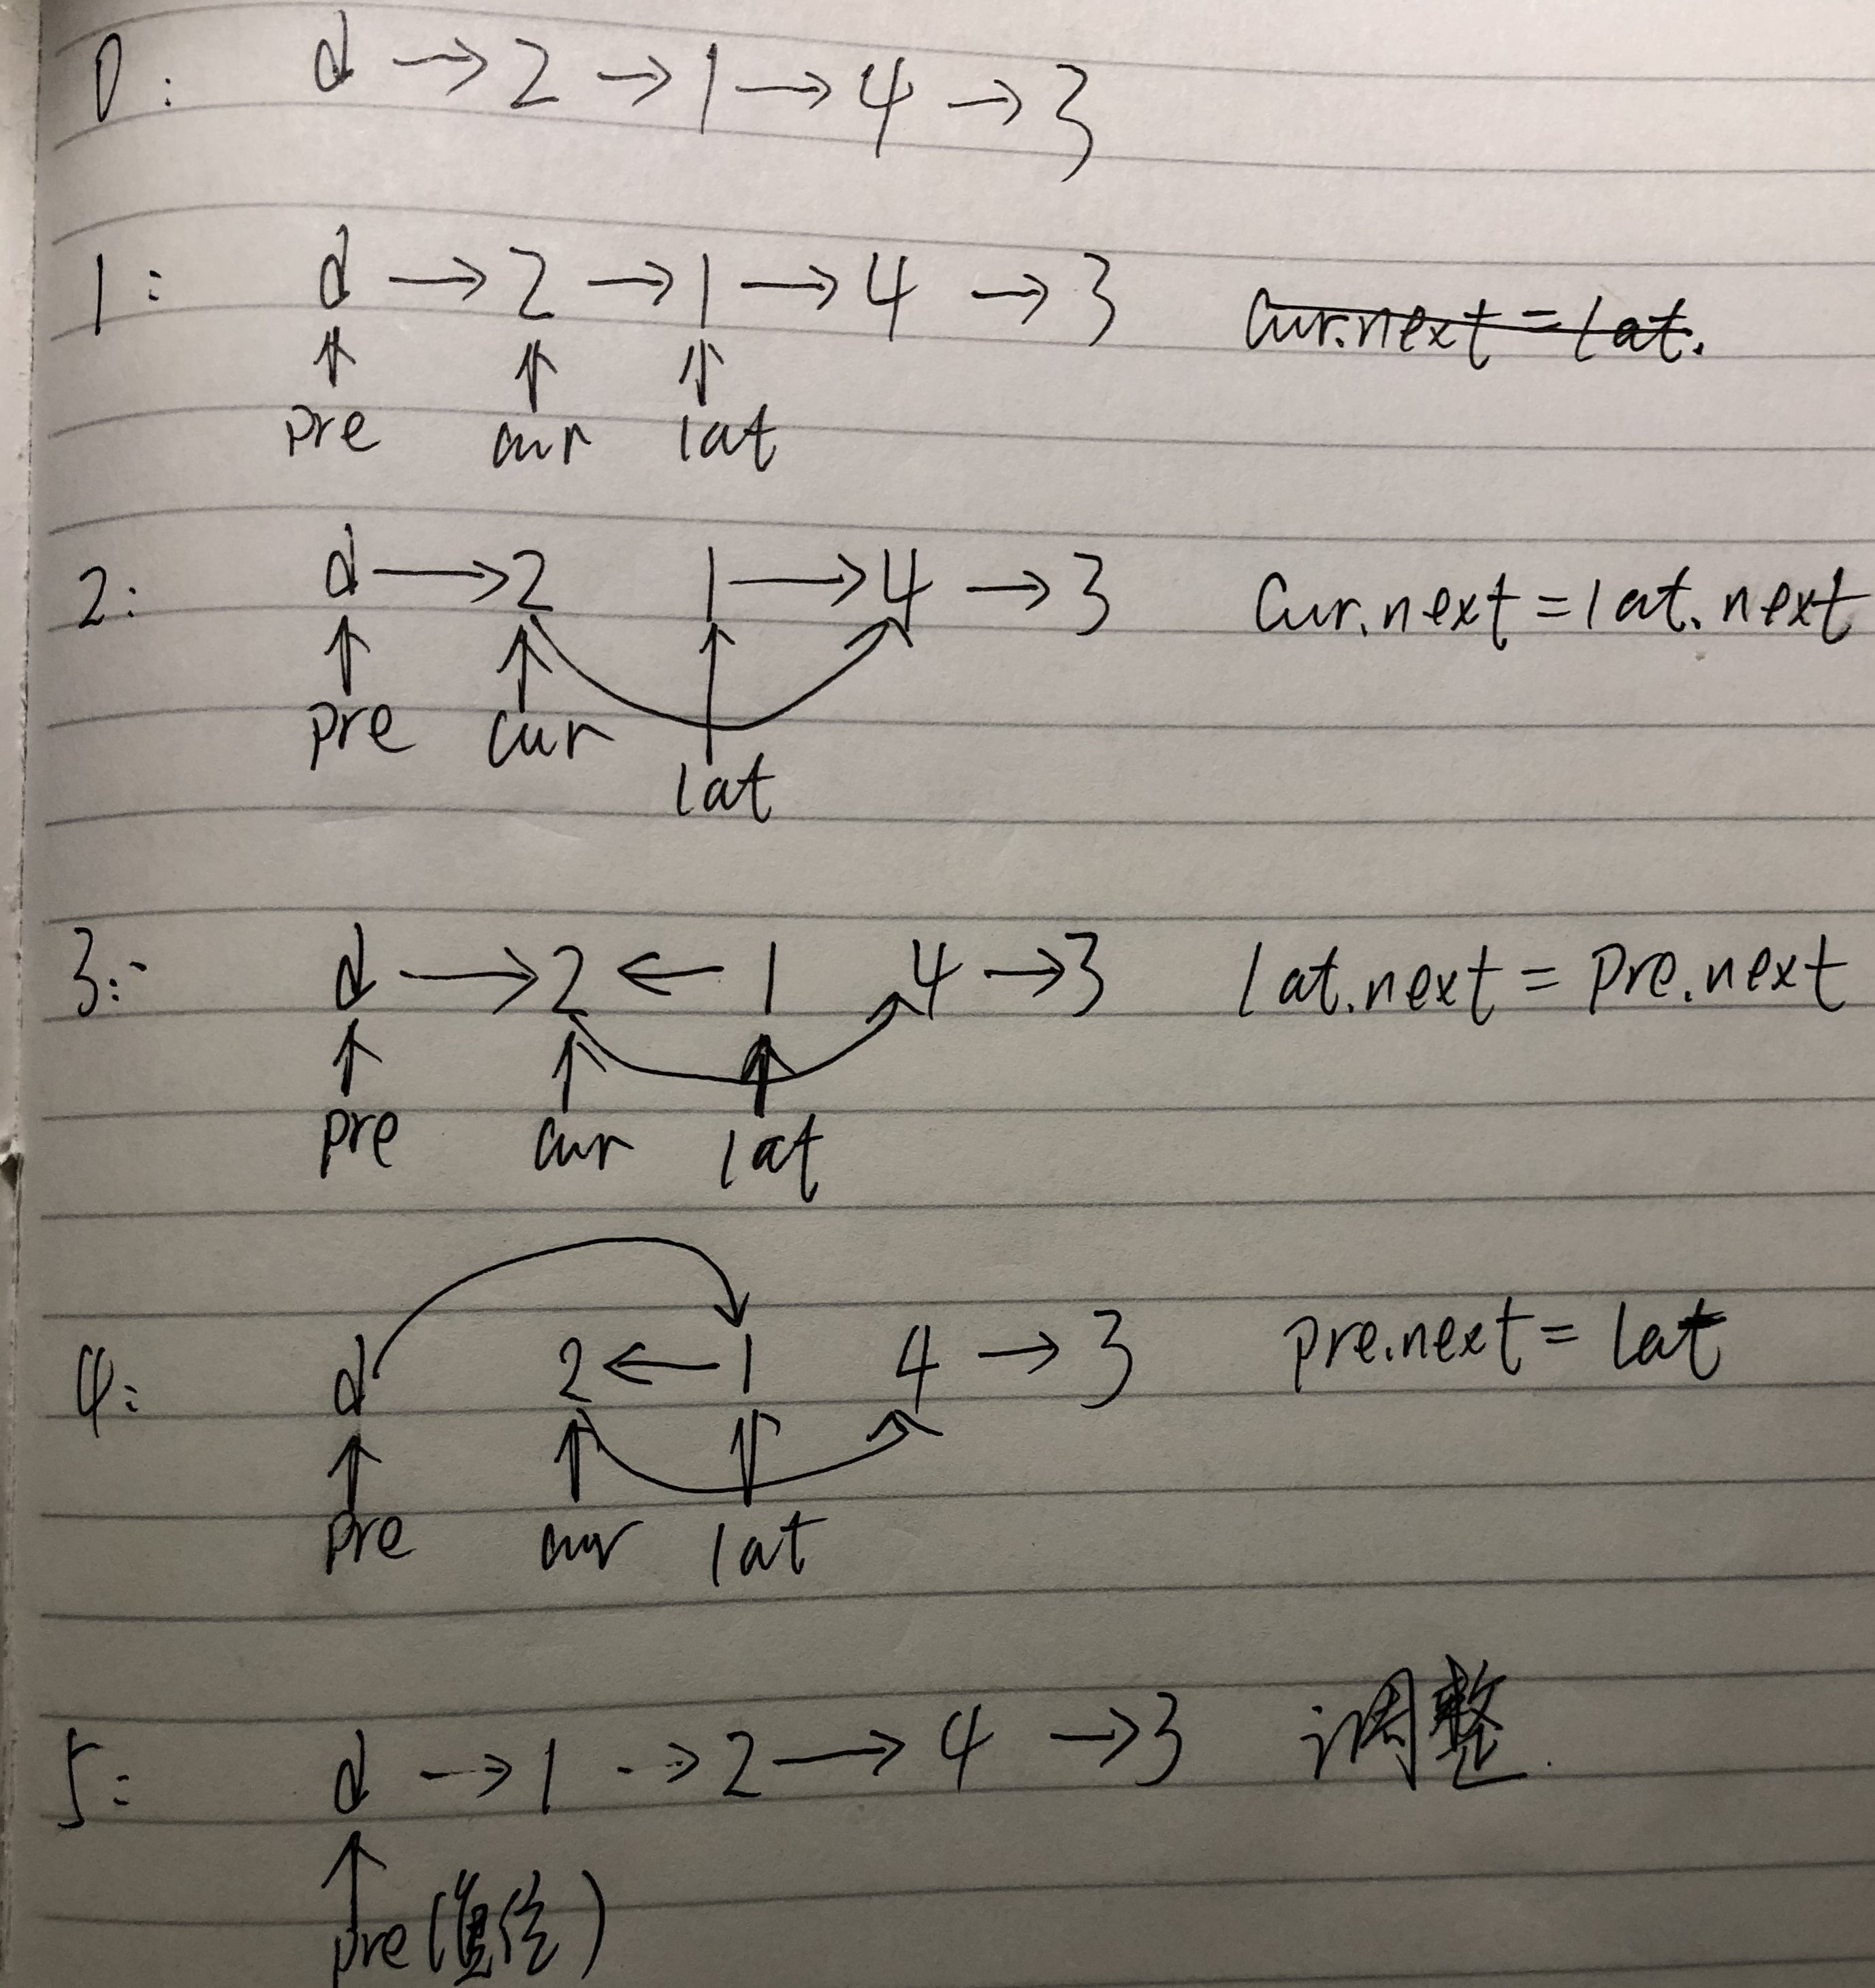 0: d → 2 → 1 → 4 → 3
1: d → 2 → 1 → 4 → 3 cur.next = lat.
pre cur lat
2: d → 2 1 → 4 → 3 cur.next = lat.next
pre cur
lat
3: d → 2 ← 1 4 → 3 lat.next = pre.next
pre cur lat
4: d 2 ← 1 4 → 3 pre.next = lat
pre cur lat
5: d → 1 → 2 → 4 → 3 调整.
pre (复位)